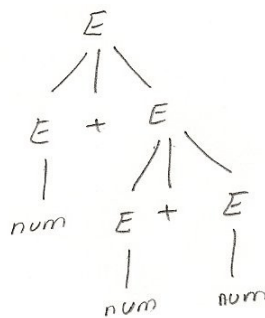 E
E + E
num E + E
num num